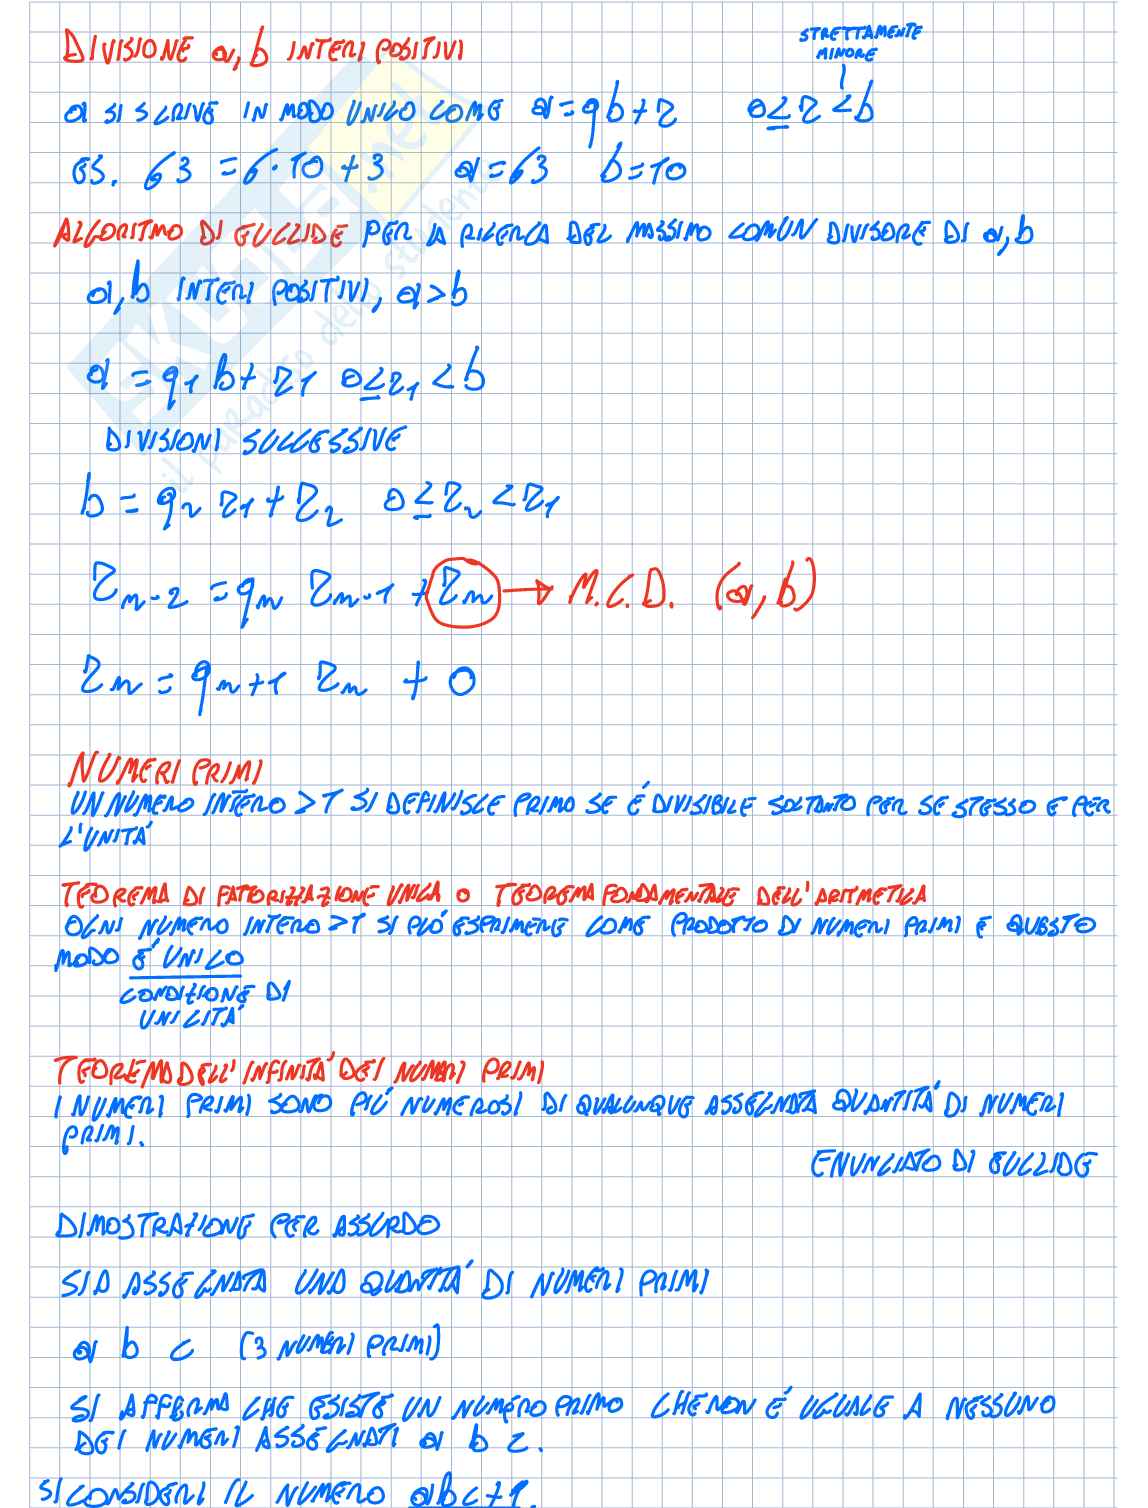 DIVISIONE a, b INTERI POSITIVI
STRETTAMENTE
MINORE
a SI SCRIVE IN MODO UNICO COME a = qb + r 0 ≤ r < b
ES. 63 = 6·10 + 3 a = 63 b = 10
ALGORITMO DI EUCLIDE PER LA RICERCA DEL MASSIMO COMUN DIVISORE DI a, b
a, b INTERI POSITIVI, a > b
a = q1 b + r1 0 ≤ r1 < b
DIVISIONI SUCCESSIVE
b = q2 r1 + r2 0 ≤ r2 < r1
rn-2 = qn rn-1 + rn → M.C.D. (a, b)
rn = qn+1 rn + 0
NUMERI PRIMI
UN NUMERO INTERO > 1 SI DEFINISCE PRIMO SE É DIVISIBILE SOLTANTO PER SE STESSO E PER
L'UNITÁ
TEOREMA DI FATTORIZZAZIONE UNICA O TEOREMA FONDAMENTALE DELL'ARITMETICA
OGNI NUMERO INTERO > 1 SI PUÓ ESPRIMERE COME PRODOTTO DI NUMERI PRIMI E QUESTO
MODO É UNICO
CONDIZIONE DI
UNICITÁ
TEOREMA DELL'INFINITÁ DEI NUMERI PRIMI
I NUMERI PRIMI SONO PIÚ NUMEROSI DI QUALUNQUE ASSEGNATA QUANTITÁ DI NUMERI
PRIMI.
ENUNCIATO DI EUCLIDE
DIMOSTRAZIONE PER ASSURDO
SIA ASSEGNATA UNA QUANTITÁ DI NUMERI PRIMI
a b c (3 NUMERI PRIMI)
SI AFFERMA CHE ESISTE UN NUMERO PRIMO CHE NON É UGUALE A NESSUNO
DEI NUMERI ASSEGNATI a b c.
SI CONSIDERI IL NUMERO abc+1.
SKUOLA.net
il paradiso dello studente